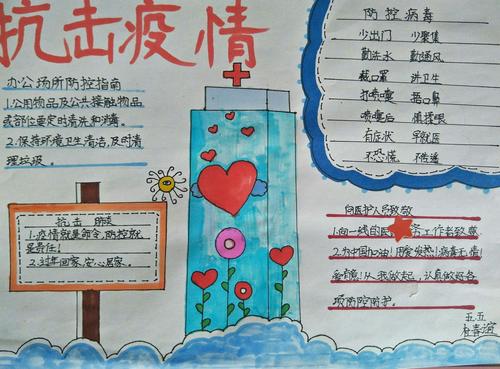 抗击疫情
办公场所防控指南
1.公用物品及公共接触物品
或部位要定时清洗和消毒。
2.保持环境卫生清洁,及时清
理垃圾。
抗击
1.疫情就是命令,防控就
是责任!
2.过年回家,安心居家。
防控病毒
少出门 少聚集
勤洗水 勤通风
戴口罩 讲卫生
打喷嚏 捂口鼻
喷嚏后 慎揉眼
有症状 早就医
不恐慌 不传谣
向医护人员致敬
1.向一线的医务工作者致敬
2.为中国加油!用爱发热!病毒无情!
爱有情!从我做起,认真做好各
项防控防护。
五五